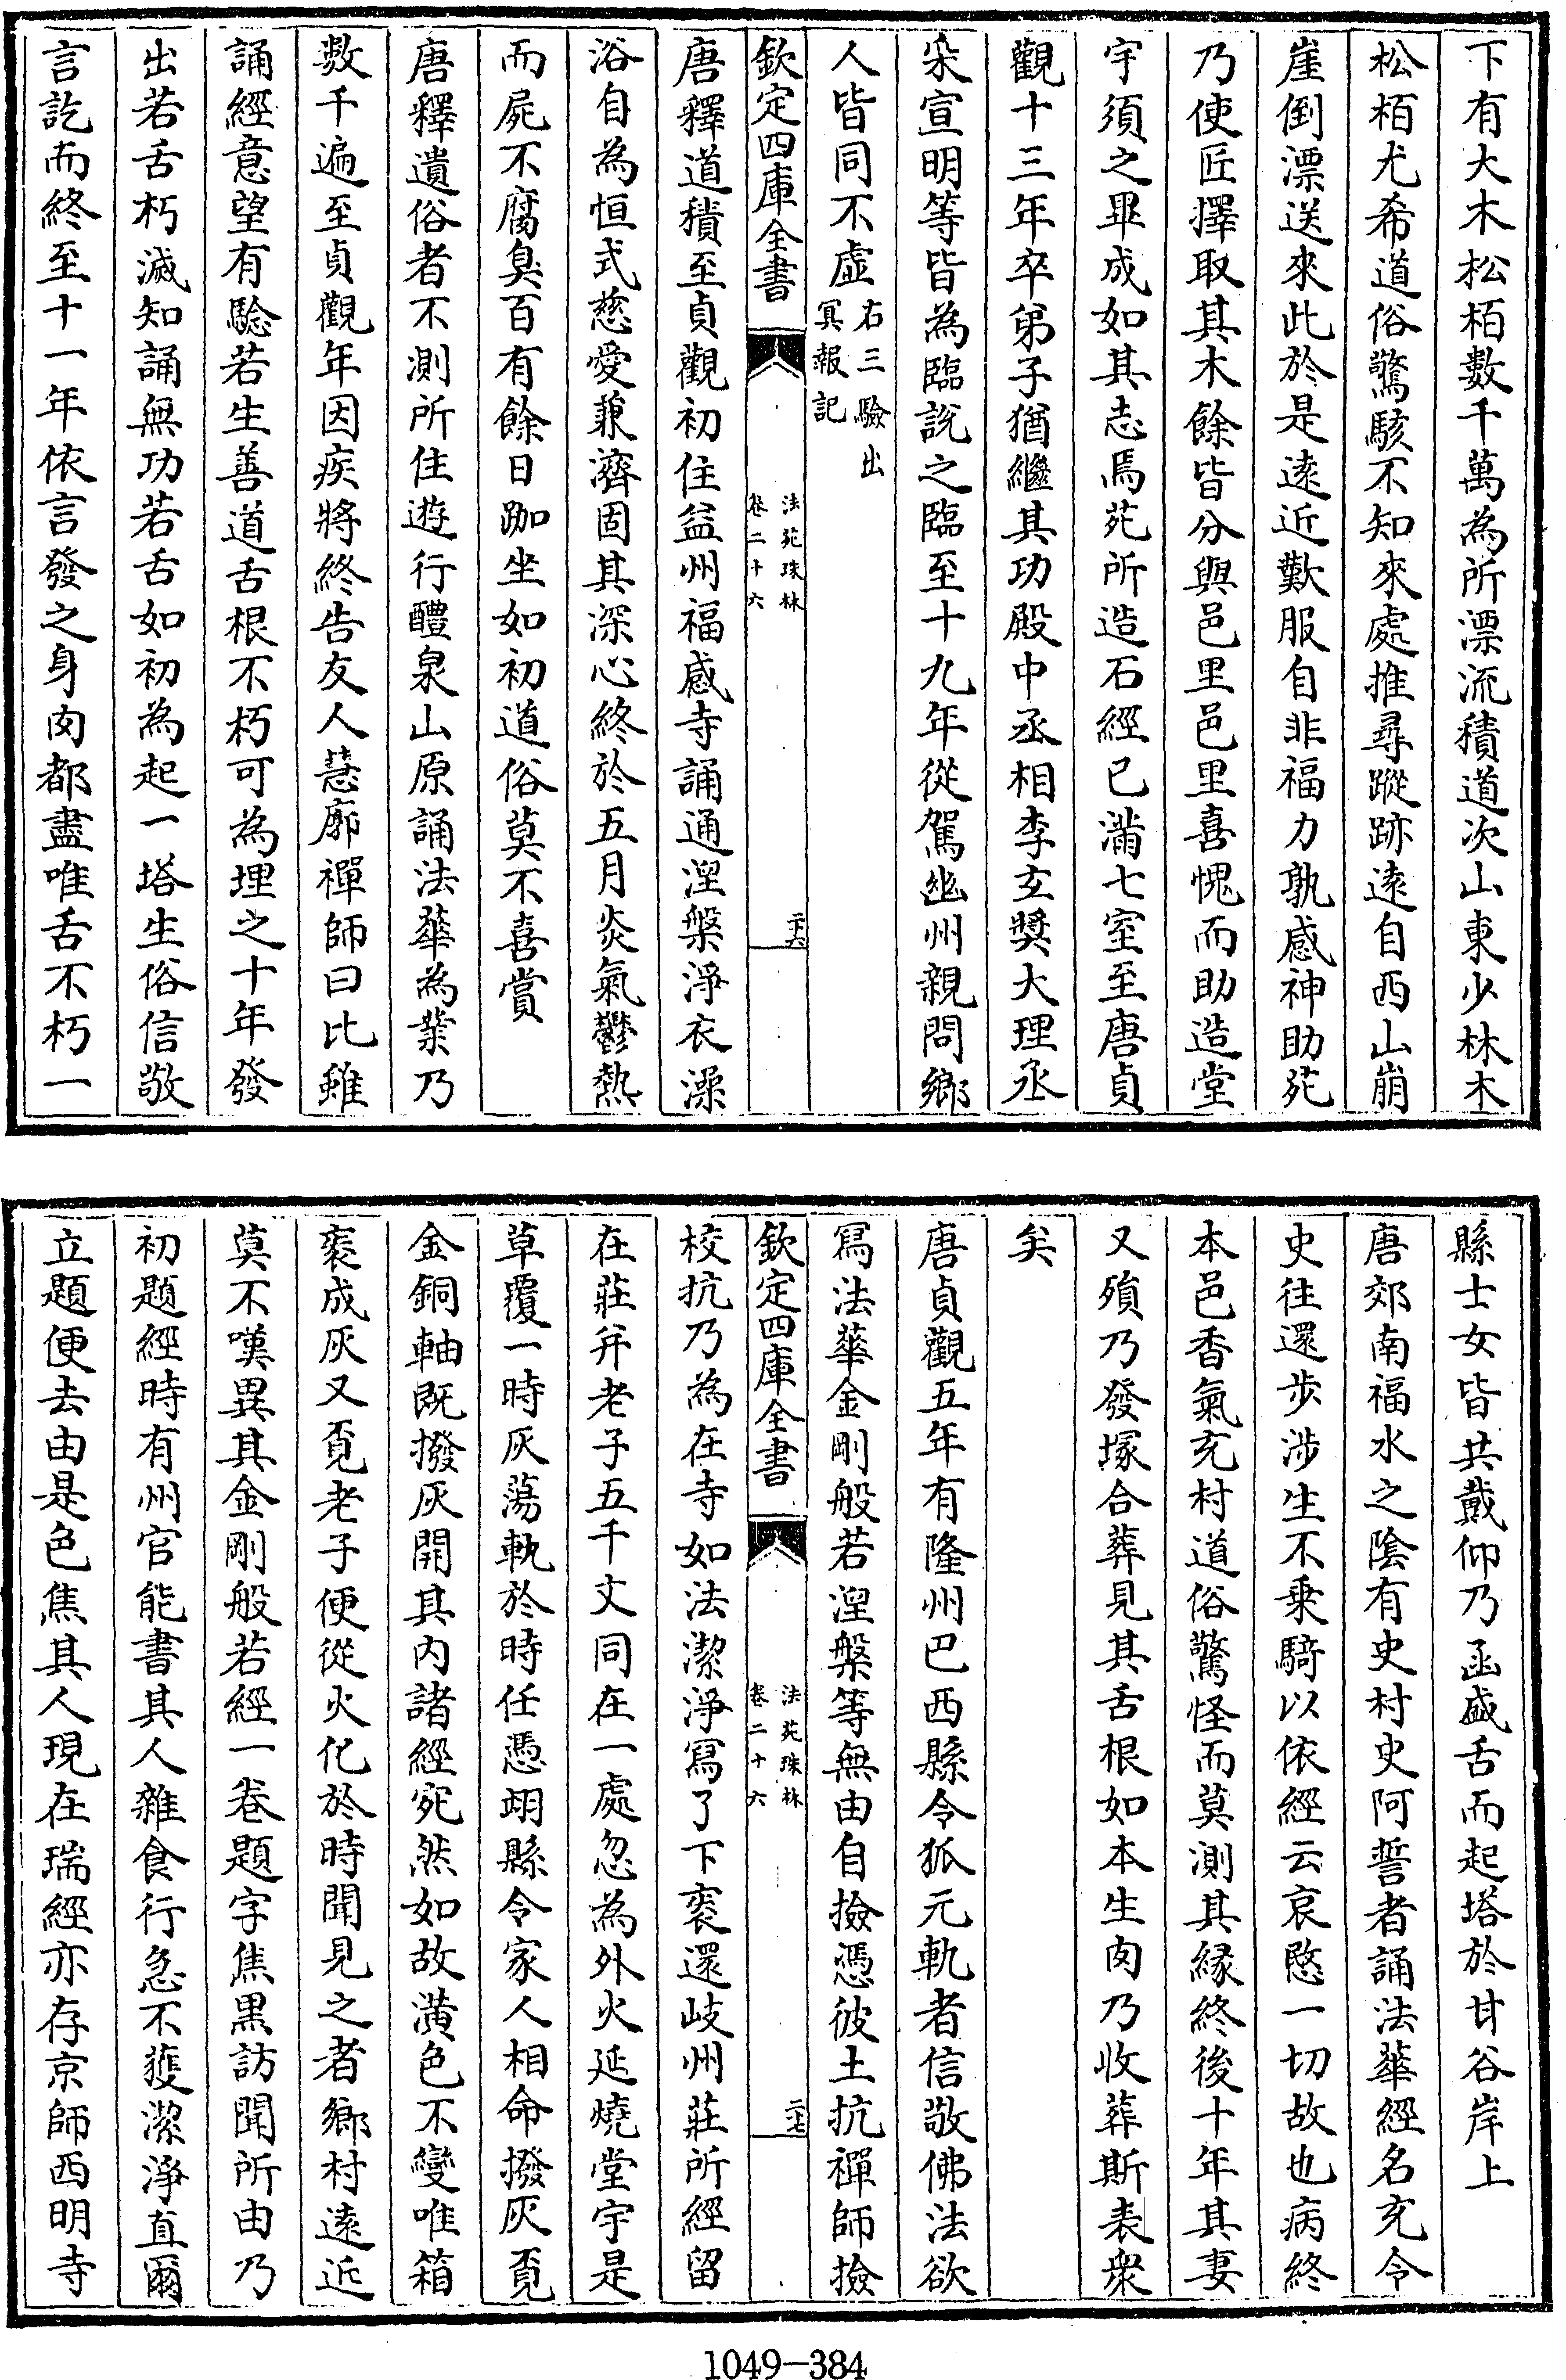 下有大木松栢數千萬為所漂流積道次山東少林木
松栢尤希道俗驚駭不知來處推尋蹤跡遠自西山崩
崖倒漂送來此於是遠近歎服自非福力孰感神助苑
乃使匠擇取其木餘皆分與邑里邑里喜愧而助造堂
宇須之畢成如其志焉苑所造石經已滿七室至唐貞
觀十三年卒弟子猶繼其功殿中丞相李玄奬大理丞
宋宣明等皆為臨說之臨至十九年從駕幽州親問鄉
人皆同不虛右三驗出冥報記
欽定四庫全書
法苑珠林
卷二十六
二十六
唐釋道積至貞觀初住益州福感寺誦通涅槃淨衣澡
浴自為恒式慈愛兼濟固其深心終於五月炎氣鬱熱
而屍不腐臭百有餘日跏坐如初道俗莫不喜賞
唐釋遺俗者不測所住遊行醴泉山原誦法華為業乃
數千遍至貞觀年因疾將終告友人慧廓禪師曰比雖
誦經意望有驗若生善道舌根不朽可為埋之十年發
出若舌朽滅知誦無功若舌如初為起一塔生俗信敬
言訖而終至十一年依言發之身肉都盡唯舌不朽一
縣士女皆共戴仰乃函盛舌而起塔於甘谷岸上
唐郊南福水之陰有史村史阿誓者誦法華經名充令
史往還步涉生不乗騎以依經云哀愍一切故也病終
本邑香氣充村道俗驚怪而莫測其縁終後十年其妻
又殞乃發塚合葬見其舌根如本生肉乃收葬斯表衆
矣
唐貞觀五年有隆州巴西縣令狐元軌者信敬佛法欲
寫法華金剛般若涅槃等無由自撿憑彼土抗禪師撿
欽定四庫全書
法苑珠林
卷二十六
二十七
校抗乃為在寺如法潔淨寫了下袠還岐州莊所經留
在莊并老子五千文同在一處忽為外火延燒堂宇是
草覆一時灰蕩軌於時任憑翊縣令家人相命撥灰覓
金銅軸既撥灰開其內諸經宛然如故潢色不變唯箱
袠成灰又覓老子便從火化於時聞見之者鄉村遠近
莫不嘆異其金剛般若經一卷題字焦黒訪聞所由乃
初題經時有州官能書其人雜食行急不獲潔淨直爾
立題便去由是色焦其人現在瑞經亦存京師西明寺
1049-384